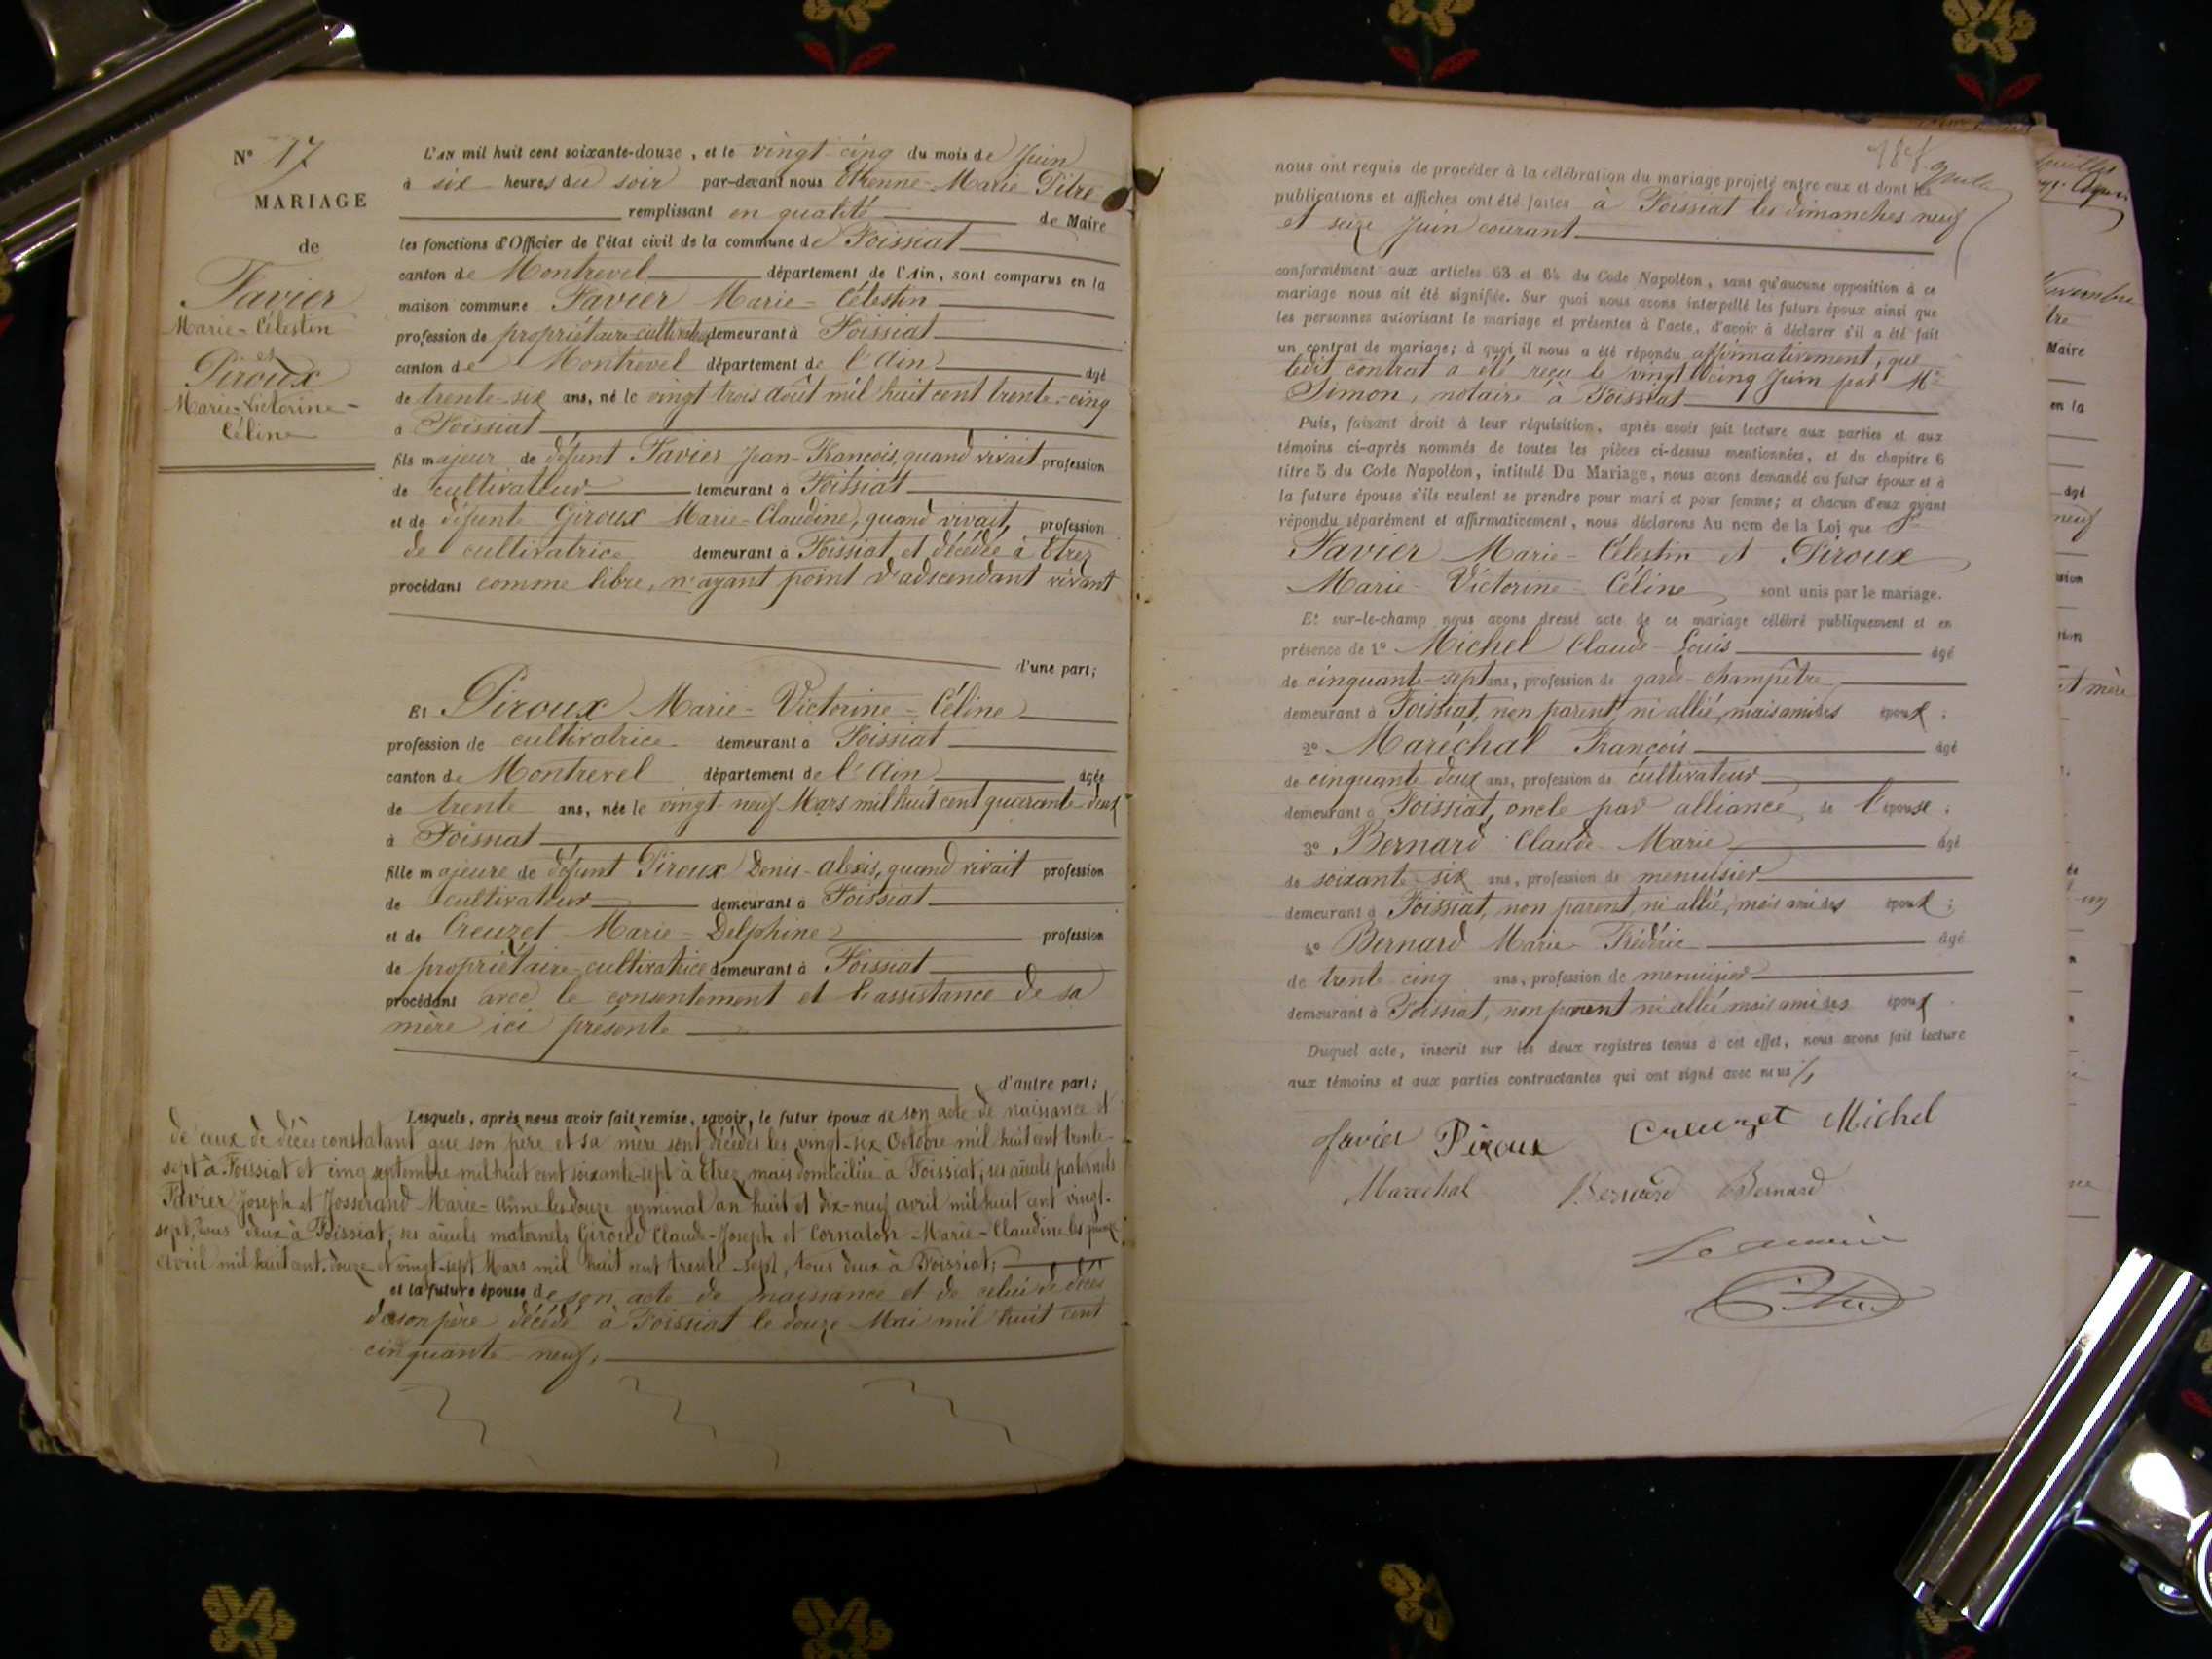 N° 17
MARIAGE
de
Favier
Marie-Célestin
et
Piroux
Marie-Victorine-
Céline
L'AN mil huit cent soixante-douze, et le vingt-cinq du mois de Juin
à six heures du soir par-devant nous Etienne-Marie Pitre
remplissant en qualité de Maire
les fonctions d'Officier de l'état civil de la commune de Foissiat
canton de Montrevel département de l'Ain, sont comparus en la
maison commune Favier Marie-Célestin
profession de propriétaire-cultivateur demeurant à Foissiat
canton de Montrevel département de l'Ain âgé
de trente-six ans, né le vingt trois août mil huit cent trente-cinq
à Foissiat
fils majeur de défunt Favier Jean-François, quand vivait profession
de cultivateur demeurant à Foissiat
et de défunte Giroux Marie-Claudine, quand vivait, profession
de cultivatrice demeurant à Foissiat, et décédée à Etrez
procédant comme libre, n'ayant point d'adscendant vivant
d'une part;
Et Piroux Marie-Victorine-Céline
profession de cultivatrice demeurant à Foissiat
canton de Montrevel département de l'Ain âgée
de trente ans, née le vingt-neuf Mars mil huit cent quarante-deux
à Foissiat
fille majeure de défunt Piroux Denis-Alexis, quand vivait profession
de cultivateur demeurant à Foissiat
et de Creuzet Marie-Delphine profession
de propriétaire-cultivatrice demeurant à Foissiat
procédant avec le consentement et l'assistance de sa
mère ici présente
d'autre part;
Lesquels, après nous avoir fait remise, savoir, le futur époux de son acte de naissance et
de ceux de décès constatant que son père et sa mère sont décédés les vingt-six Octobre mil huit cent trente-
sept à Foissiat et cinq septembre mil huit cent soixante-sept à Etrez, mais domiciliée à Foissiat; ses aïeuls paternels
Favier Joseph et Josserand Marie-Anne les douze germinal an huit et dix-neuf avril mil huit cent vingt-
sept, tous deux à Foissiat; ses aïeuls maternels Giroud Claude-Joseph et Cornaton Marie-Claudine les quinze
avril mil huit cent douze et vingt-sept Mars mil huit cent trente-sept, tous deux à Foissiat;
et la future épouse de son acte de naissance et de celui de décès
de son père décédé à Foissiat le douze Mai mil huit cent
cinquante-neuf;
nous ont requis de procéder à la célébration du mariage projeté entre eux et dont les
publications et affiches ont été faites à Foissiat les dimanches neuf
et seize Juin courant
conformément aux articles 63 et 64 du Code Napoléon, sans qu'aucune opposition à ce
mariage nous ait été signifiée. Sur quoi nous avons interpellé les futurs époux ainsi que
les personnes autorisant le mariage et présentes à l'acte, d'avoir à déclarer s'il a été fait
un contrat de mariage; à quoi il nous a été répondu affirmativement, que
ledit contrat a été reçu le vingt cinq Juin par Me
Simon, notaire à Foissiat
Puis, faisant droit à leur réquisition, après avoir fait lecture aux parties et aux
témoins ci-après nommés de toutes les pièces ci-dessus mentionnées, et du chapitre 6
titre 5 du Code Napoléon, intitulé Du Mariage, nous avons demandé au futur époux et à
la future épouse s'ils veulent se prendre pour mari et pour femme; et chacun d'eux ayant
répondu séparément et affirmativement, nous déclarons Au nom de la Loi que
Favier Marie-Célestin et Piroux
Marie-Victorine-Céline sont unis par le mariage.
Et sur-le-champ nous avons dressé acte de ce mariage célébré publiquement et en
présence de 1° Michel Claude-Louis âgé
de cinquante-sept ans, profession de garde-champêtre
demeurant à Foissiat, non parent, ni allié, mais ami des époux;
2° Maréchal François âgé
de cinquante deux ans, profession de cultivateur
demeurant à Foissiat, oncle par alliance, de l'épouse;
3° Bernard Claude-Marie âgé
de soixante-six ans, profession de menuisier
demeurant à Foissiat, non parent, ni allié, mais ami des époux;
4° Bernard Marie Frédéric âgé
de trente cinq ans, profession de menuisier
demeurant à Foissiat, non parent ni allié mais ami des époux.
Duquel acte, inscrit sur les deux registres tenus à cet effet, nous avons fait lecture
aux témoins et aux parties contractantes qui ont signé avec nous
Favier Piroux Creuzet Michel
Marechal Bernard Bernard
Le maire
Pitre
Maire
en la
âgé
neuf
et mère